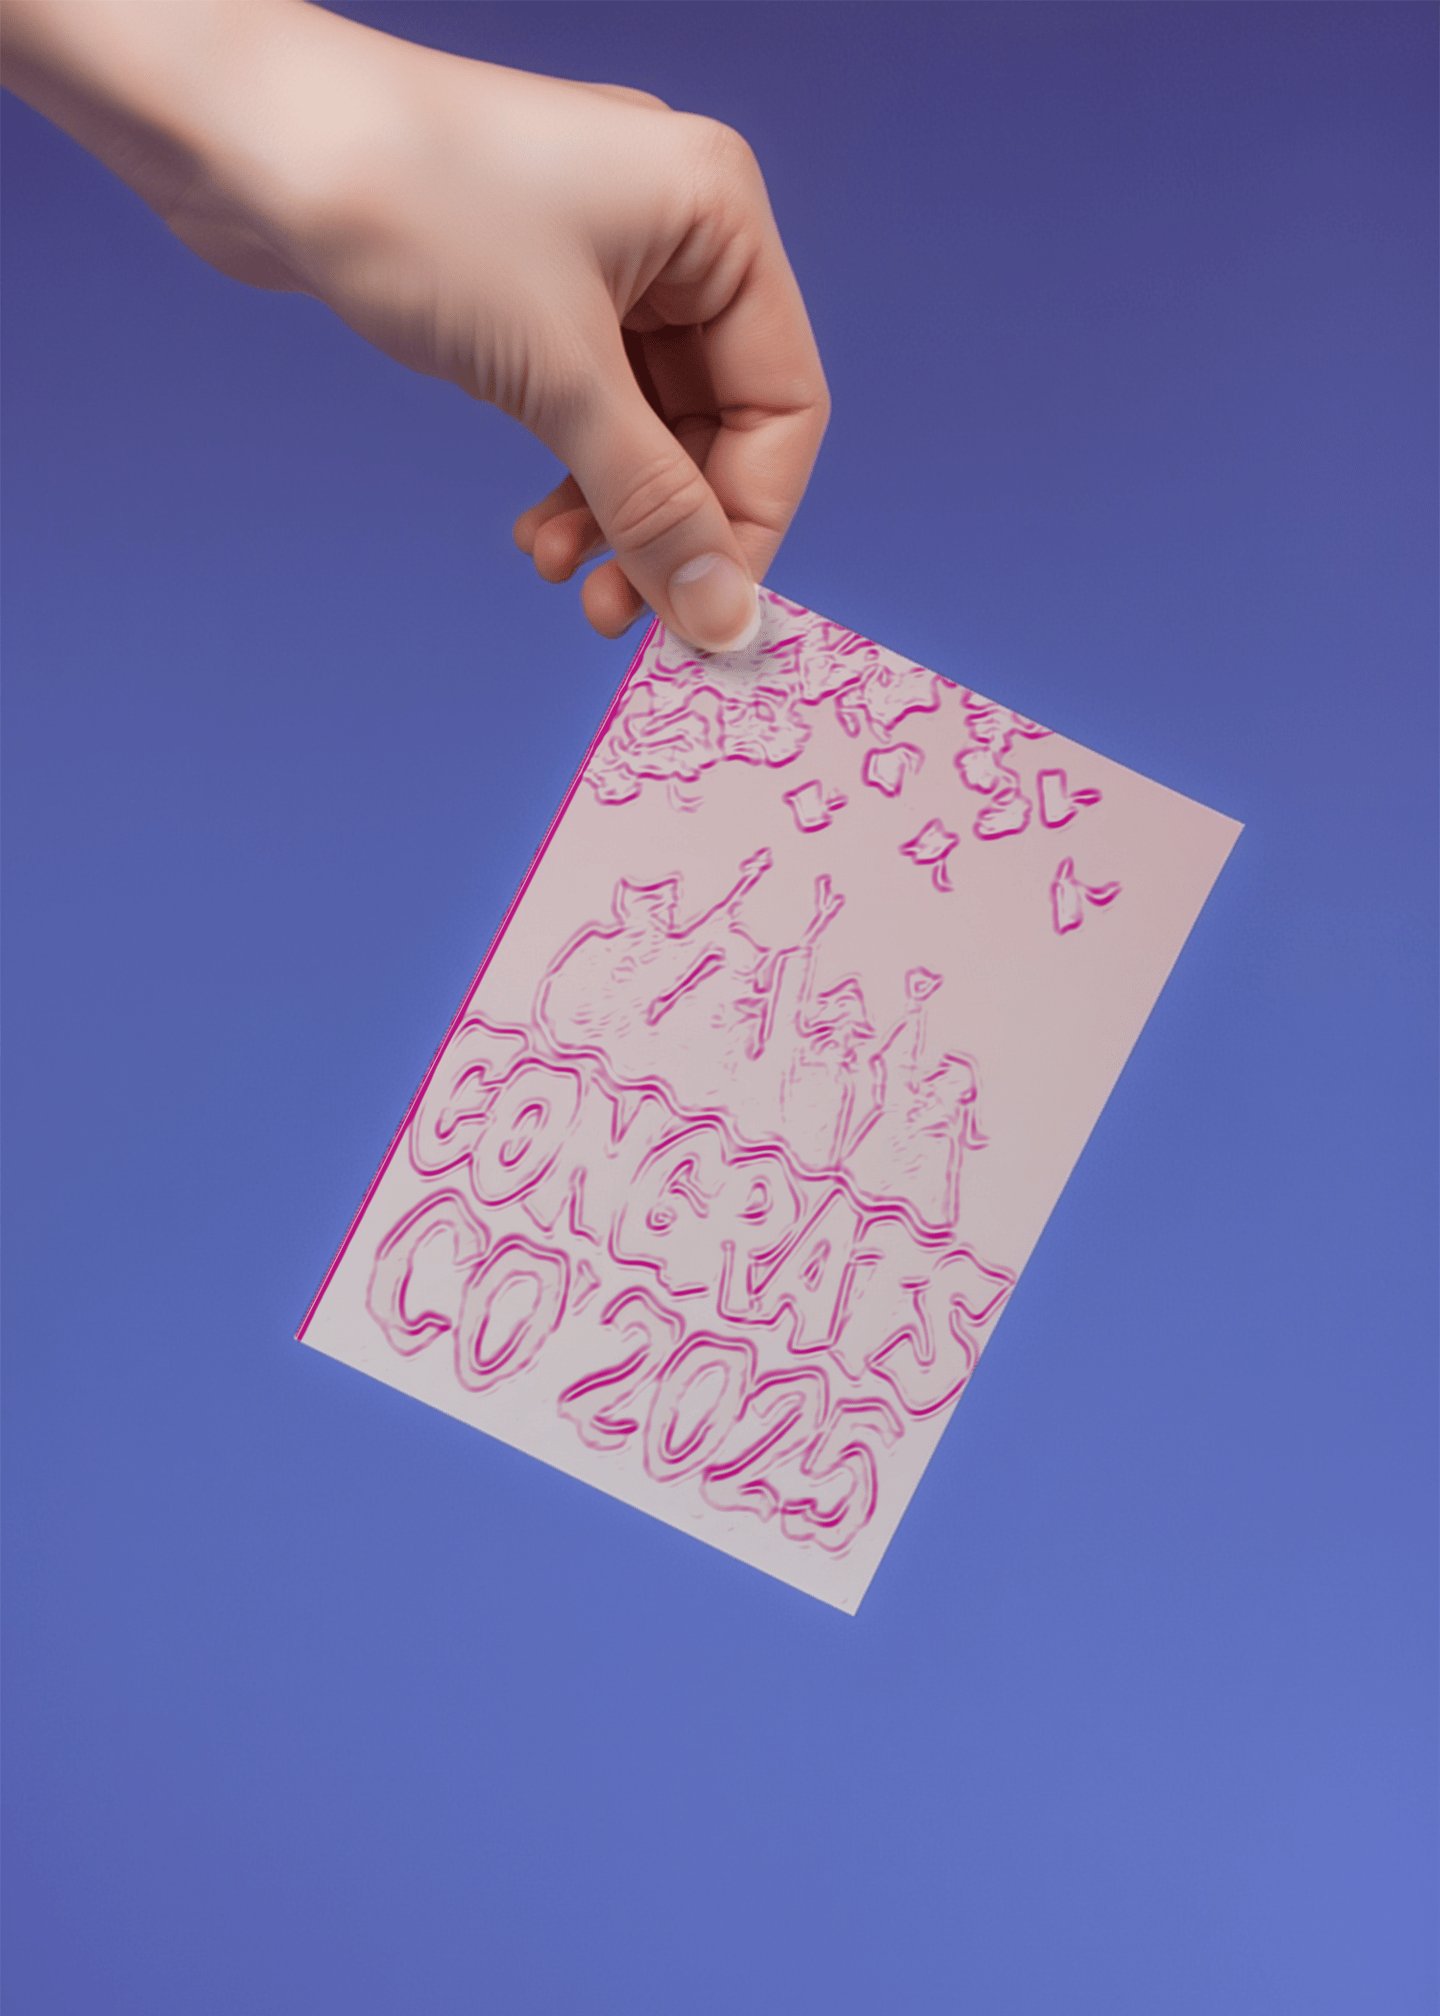 CONGRATS
CO' 2025